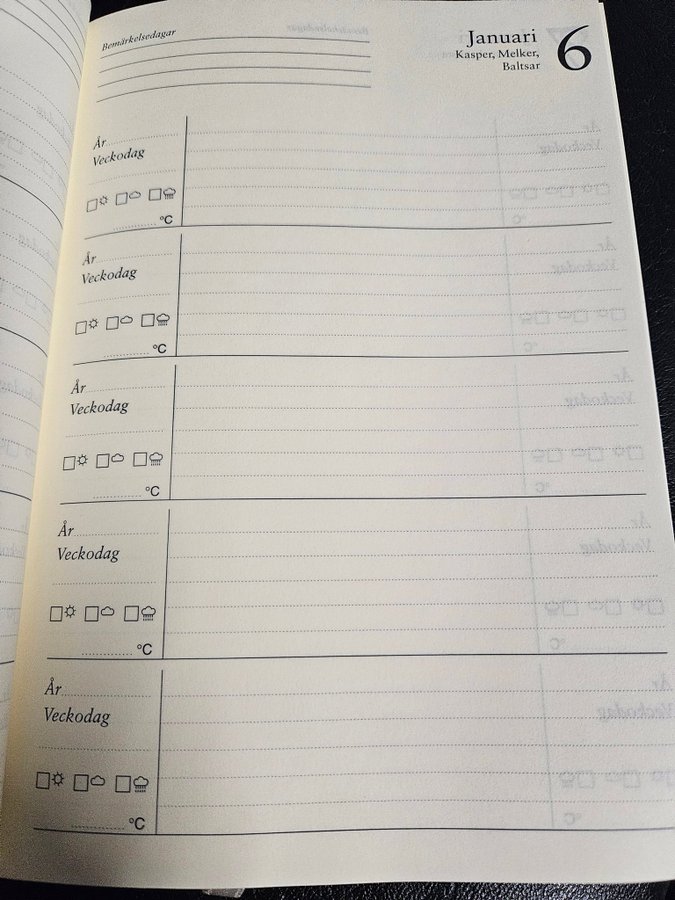 Bemärkelsedagar
Januari 6
Kasper, Melker,
Baltsar
År
Veckodag
°C
År
Veckodag
°C
År
Veckodag
°C
År
Veckodag
°C
År
Veckodag
°C